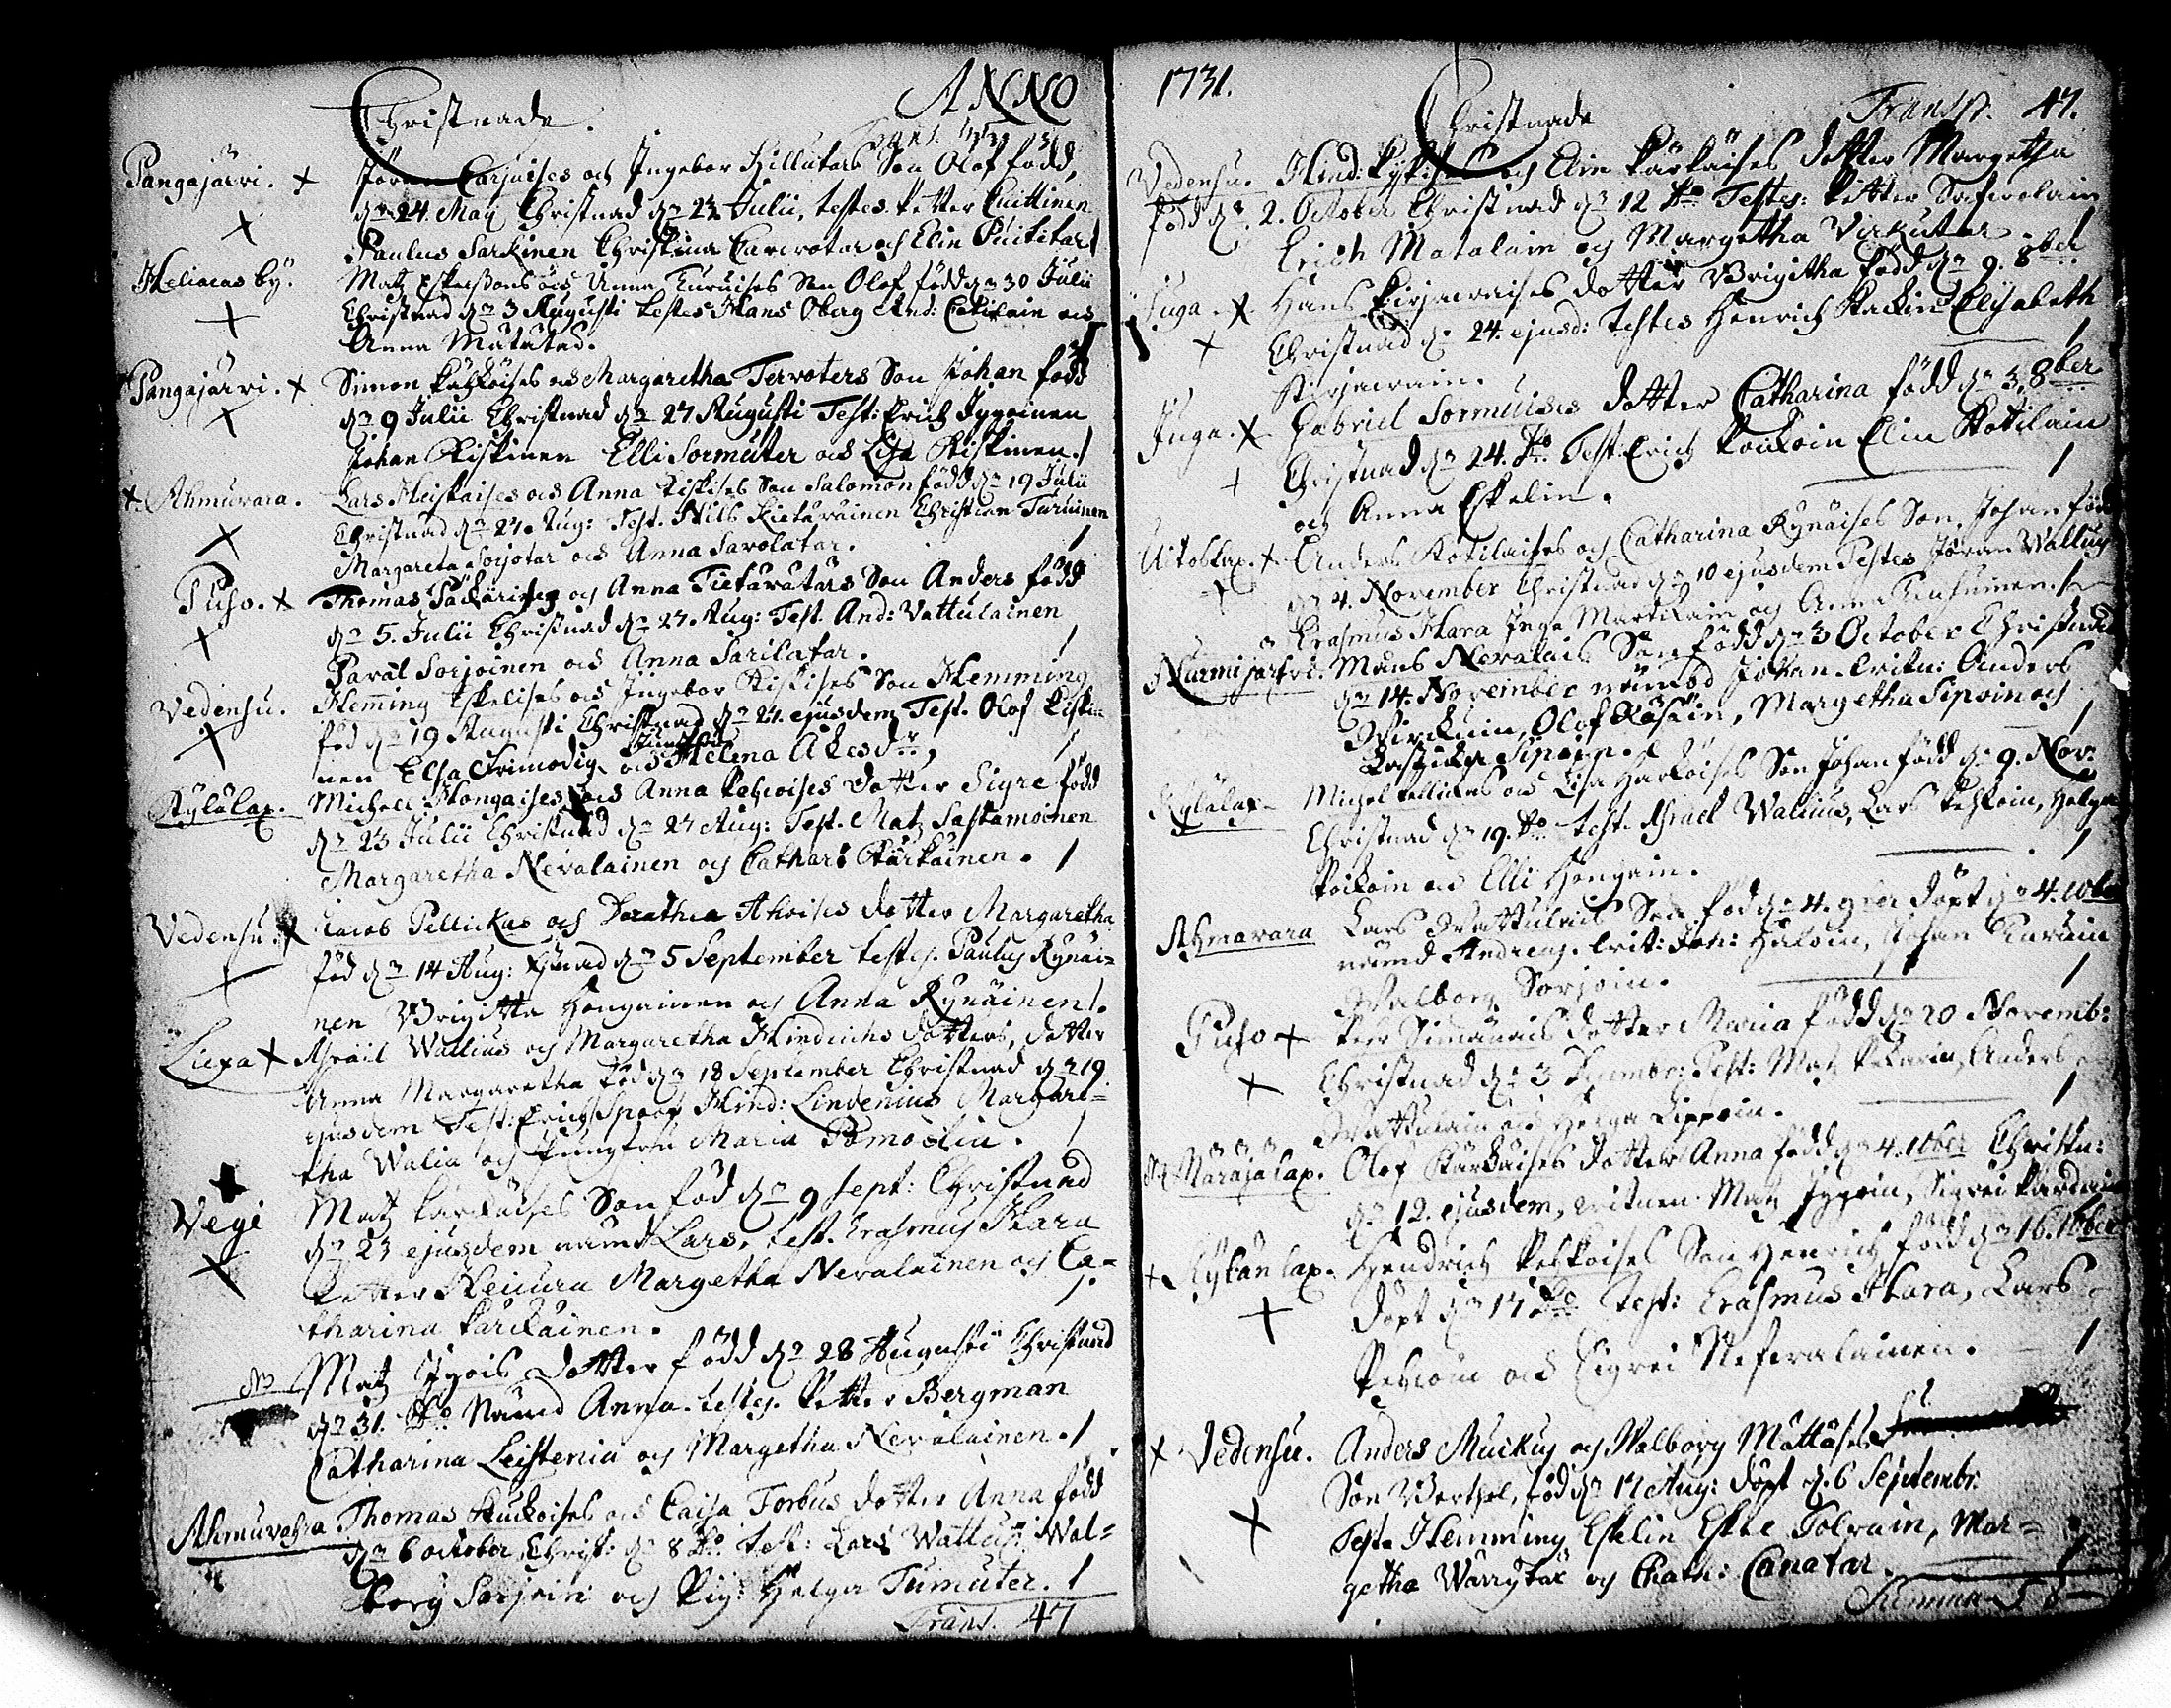 ANNO
Christnade.
Pangajärvi. + Jöran Carjaises och Ingebor Hillutars Son Olof född,
+ dn 24. May Christnad dn 22 Julii, testes Petter Cuittinen
Paulus Sarkinen Christina och Elin
Heliaeas bÿ. Matz Eskelßons och Anna Turuises Son Olof född dn 30 Julii
+ Christnad dn 3 Augusti testes Hans Oberg And: Cotilain och
Anna Mutatar.
Pangajärvi. + Simon och Margaretha Tervoters Son Johan född
+ dn 9 Julii Christnad dn 27 Augusti Test: Erich Jygoinen
Johan Kiskinen Elli Sormuter och Lisa Kiskinen. /
+ Ahmuvara. Lars Heiskaises och Anna Kiskises Son Salomon född dn 19 Julii
+ Christnad dn 27. Aug: Test. Nils Kieturäinen Christian Turuinen
Margareta Sorjotar och Anna Savolatar. /
Puso. + Thomas och Anna Tieturutars Son Anders född
+ dn 5. Julii Christnad dn 27. Aug: Test. And: Vattulainen
Pavàl Sorjoinen och Anna Sarilatar. /
Vedensu. Hemming Eskelises och Ingebor Kiskises Son Hemming
+ föd dn 19 Augusti Christnad dn 24. ejusdem Test. Olof Kiski
nen Elsa Frimodig och Helena Akesdr /
Kylälax. Michell Hongaises och Anna Pehcoises dotter Sigre född
dn 23 Julii Christnad dn 27 Aug: Test. Matz Sastamoinen
Margaretha Nevalainen och Cathar: Kärkäinen. /
Vedensu. + Jacob Pellickas och Dorathea Ahoises dotter Margaretha
+ föd dn 14 Aug: Xsnad dn 5 September testes. Paulus Rynäi=
nen Brigitta Hongainen och Anna Rynäinen /.
Liexa + Asraël Wallius och Margaretha Hindrichs dotters, dotter
Anna Margaretha föd dn 18 September Christnad dn 19
ejusdem Test: Erich Spoof Hind: Lindenius Margare=
tha Walia och Jungfru Maria Pomoelia. /
+
Vegi Matz Kärckäises Son föd dn 9 Sept: Christnad
+ dn 23 ejusdem namnd Lars, test. Erasmus Hara
Petter Margetha Nevalainen och Ca=
tharina Karckainen. /
Matz Jyois dotter född dn 28 Augusti Christnad
dn 31. do Namnd Anna. testes. Petter Bergman
Catharina Leistenia och Margetha Nevalainen. /
Ahmuvahra Thomas Kuckoises och Caisa Torbus dotter Anna född
dn 6 october, Christ: dn 8 do. test: Lars Wallius Wal=
borg Sorjoin och Pig: Helga Tumuter. /
Trans. 47
1731.
Christnade Transp. 47.
Vedensu. Hind: och Elin Kärkäises dotter Margetha
född dn. 2. October Christnad dn 12 do Testes: Petter Saferolain
Erich Matalain och Margetha Virkutar. /
Juga. + Hans Kirjavaises dotter Brigitha född dn 9. 8ber
+ Christnad dn 24. ejusd: testes Henrich Elisabeth
Kirjavain. /
Juga. + Gabriel Sormuises dotter Catharina född dn 3. 8ber
+ Christnad dn 24. do. Test: Erich Kouckoin Elin Kotilain
och Anna Eskelin. /
+ Anders Kotilaises och Catharina Rynäises Son Johan född
+ dn 4. November Christnad dn 10 ejusdem Testes Jöran Wallius
Erasmus Hara Inga Martikain och Anna /
Nurmijärfvi. Måns Nevalais Son född dn 3 October Christnad
dn 14. November nämnd Johan. Critn: Anders
Wirckuin, Olof Räsäin, Margetha Sipoin och
Sipoin. /
Kylälax. Michel Pellickas och Lisa Harkoises Son Johan född dn 9. Nov:
Christnad dn 19. do test. Asrael Walius, Lars Pehkoin, Helga
och Elli Hongain. /
Ahmavara Lars Wattulais Son föd dn 4. 9ber döpt dn 4. 10ber
namnd Andreas. Crit: Joh: Johan Turuin
Walborg Sorjoin. /
Puso + Peer Simanais dotter Maria född dn 20 Novemb:
+ Christnad dn 3 Decembr: Test: Matz Anders
Wattulain och Helga Lippoin. /
Näräjälax. Olof Kärkäises dotter Anna född dn 4. 10ber Christn:
dn 12. ejusdem, critnen Matz Jygoin, Sigrei
+ Rykänlax. Hendrich Pehkoises Son Henrich född dn 16. 10ber
+ döpt dn 17 do Test: Erasmus Hara, Lars
Pehcoin och Sigrei Neferalainen. /
+ Vedensu. Anders Muckus och Walborg Mattäses
+ Son Berthel, föd dn 17 Aug: döpt d. 6 Septembr.
Test. Hemming Eskelin Eskel Tolvain, Mar=
getha Wärrytär och Chath: Canatar. /
Summa 58